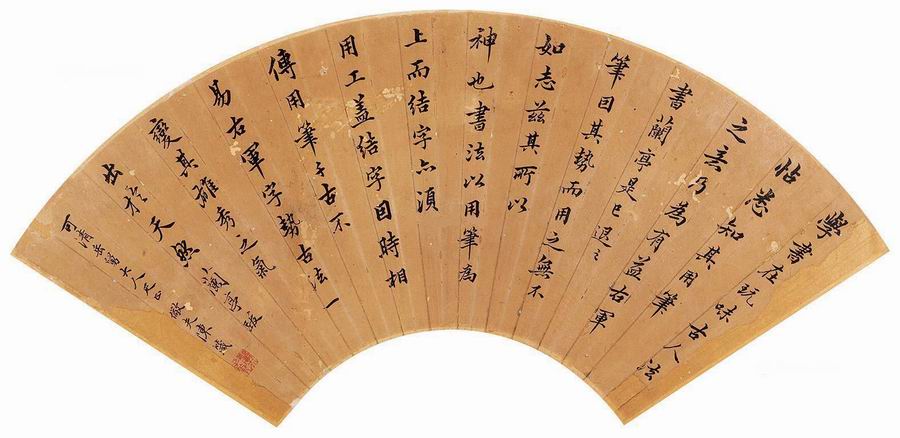 學書在玩味古人法
帖悉知其用筆
之意乃為有益右軍
書蘭亭是已退々
筆因其勢而用之無不
如志茲其所以
神也書法以用筆為
上而結字亦須
用工蓋結字因時相
傳用筆千古不
易右軍字勢古法一
變其雄秀之氣
出於天然 蘭亭跋
可 大人正 夫陳